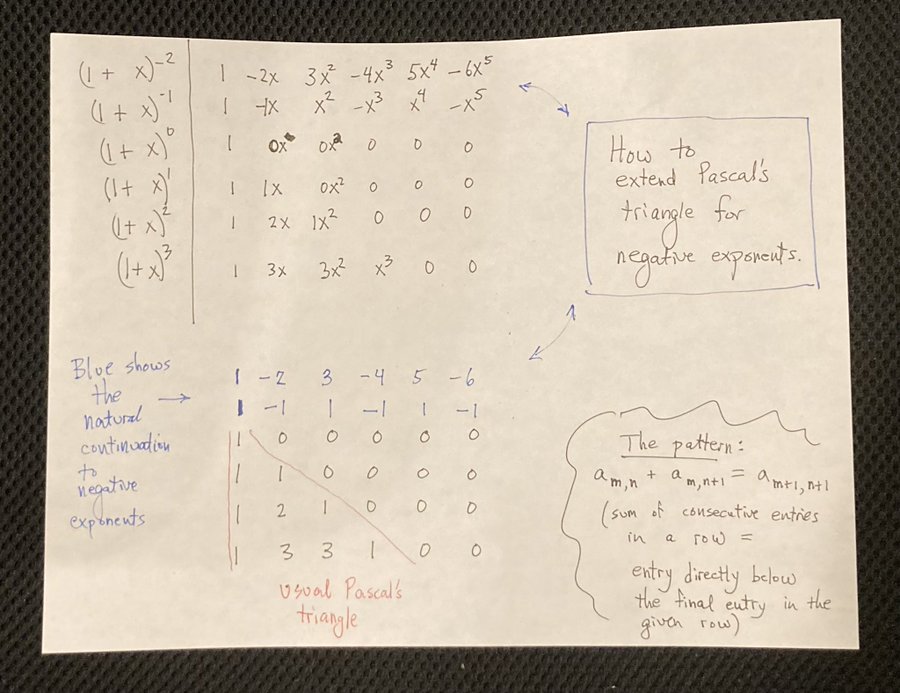 (1 + x)⁻² 1 -2x 3x² -4x³ 5x⁴ -6x⁵
(1 + x)⁻¹ 1 -1x x² -x³ x⁴ -x⁵
(1 + x)⁰ 1 0x 0x² 0 0 0
(1 + x)¹ 1 1x 0x² 0 0 0
(1 + x)² 1 2x 1x² 0 0 0
(1+x)³ 1 3x 3x² x³ 0 0
How to
extend Pascal's
triangle for
negative exponents.
Blue shows
the
natural
continuation
to
negative
exponents
1 -2 3 -4 5 -6
1 -1 1 -1 1 -1
1 0 0 0 0 0
1 1 0 0 0 0
1 2 1 0 0 0
1 3 3 1 0 0
usual Pascal's
triangle
The pattern:
aₘ,ₙ + aₘ,ₙ₊₁ = aₘ₊₁,ₙ₊₁
(sum of consecutive entries
in a row =
entry directly below
the final entry in the
given row)